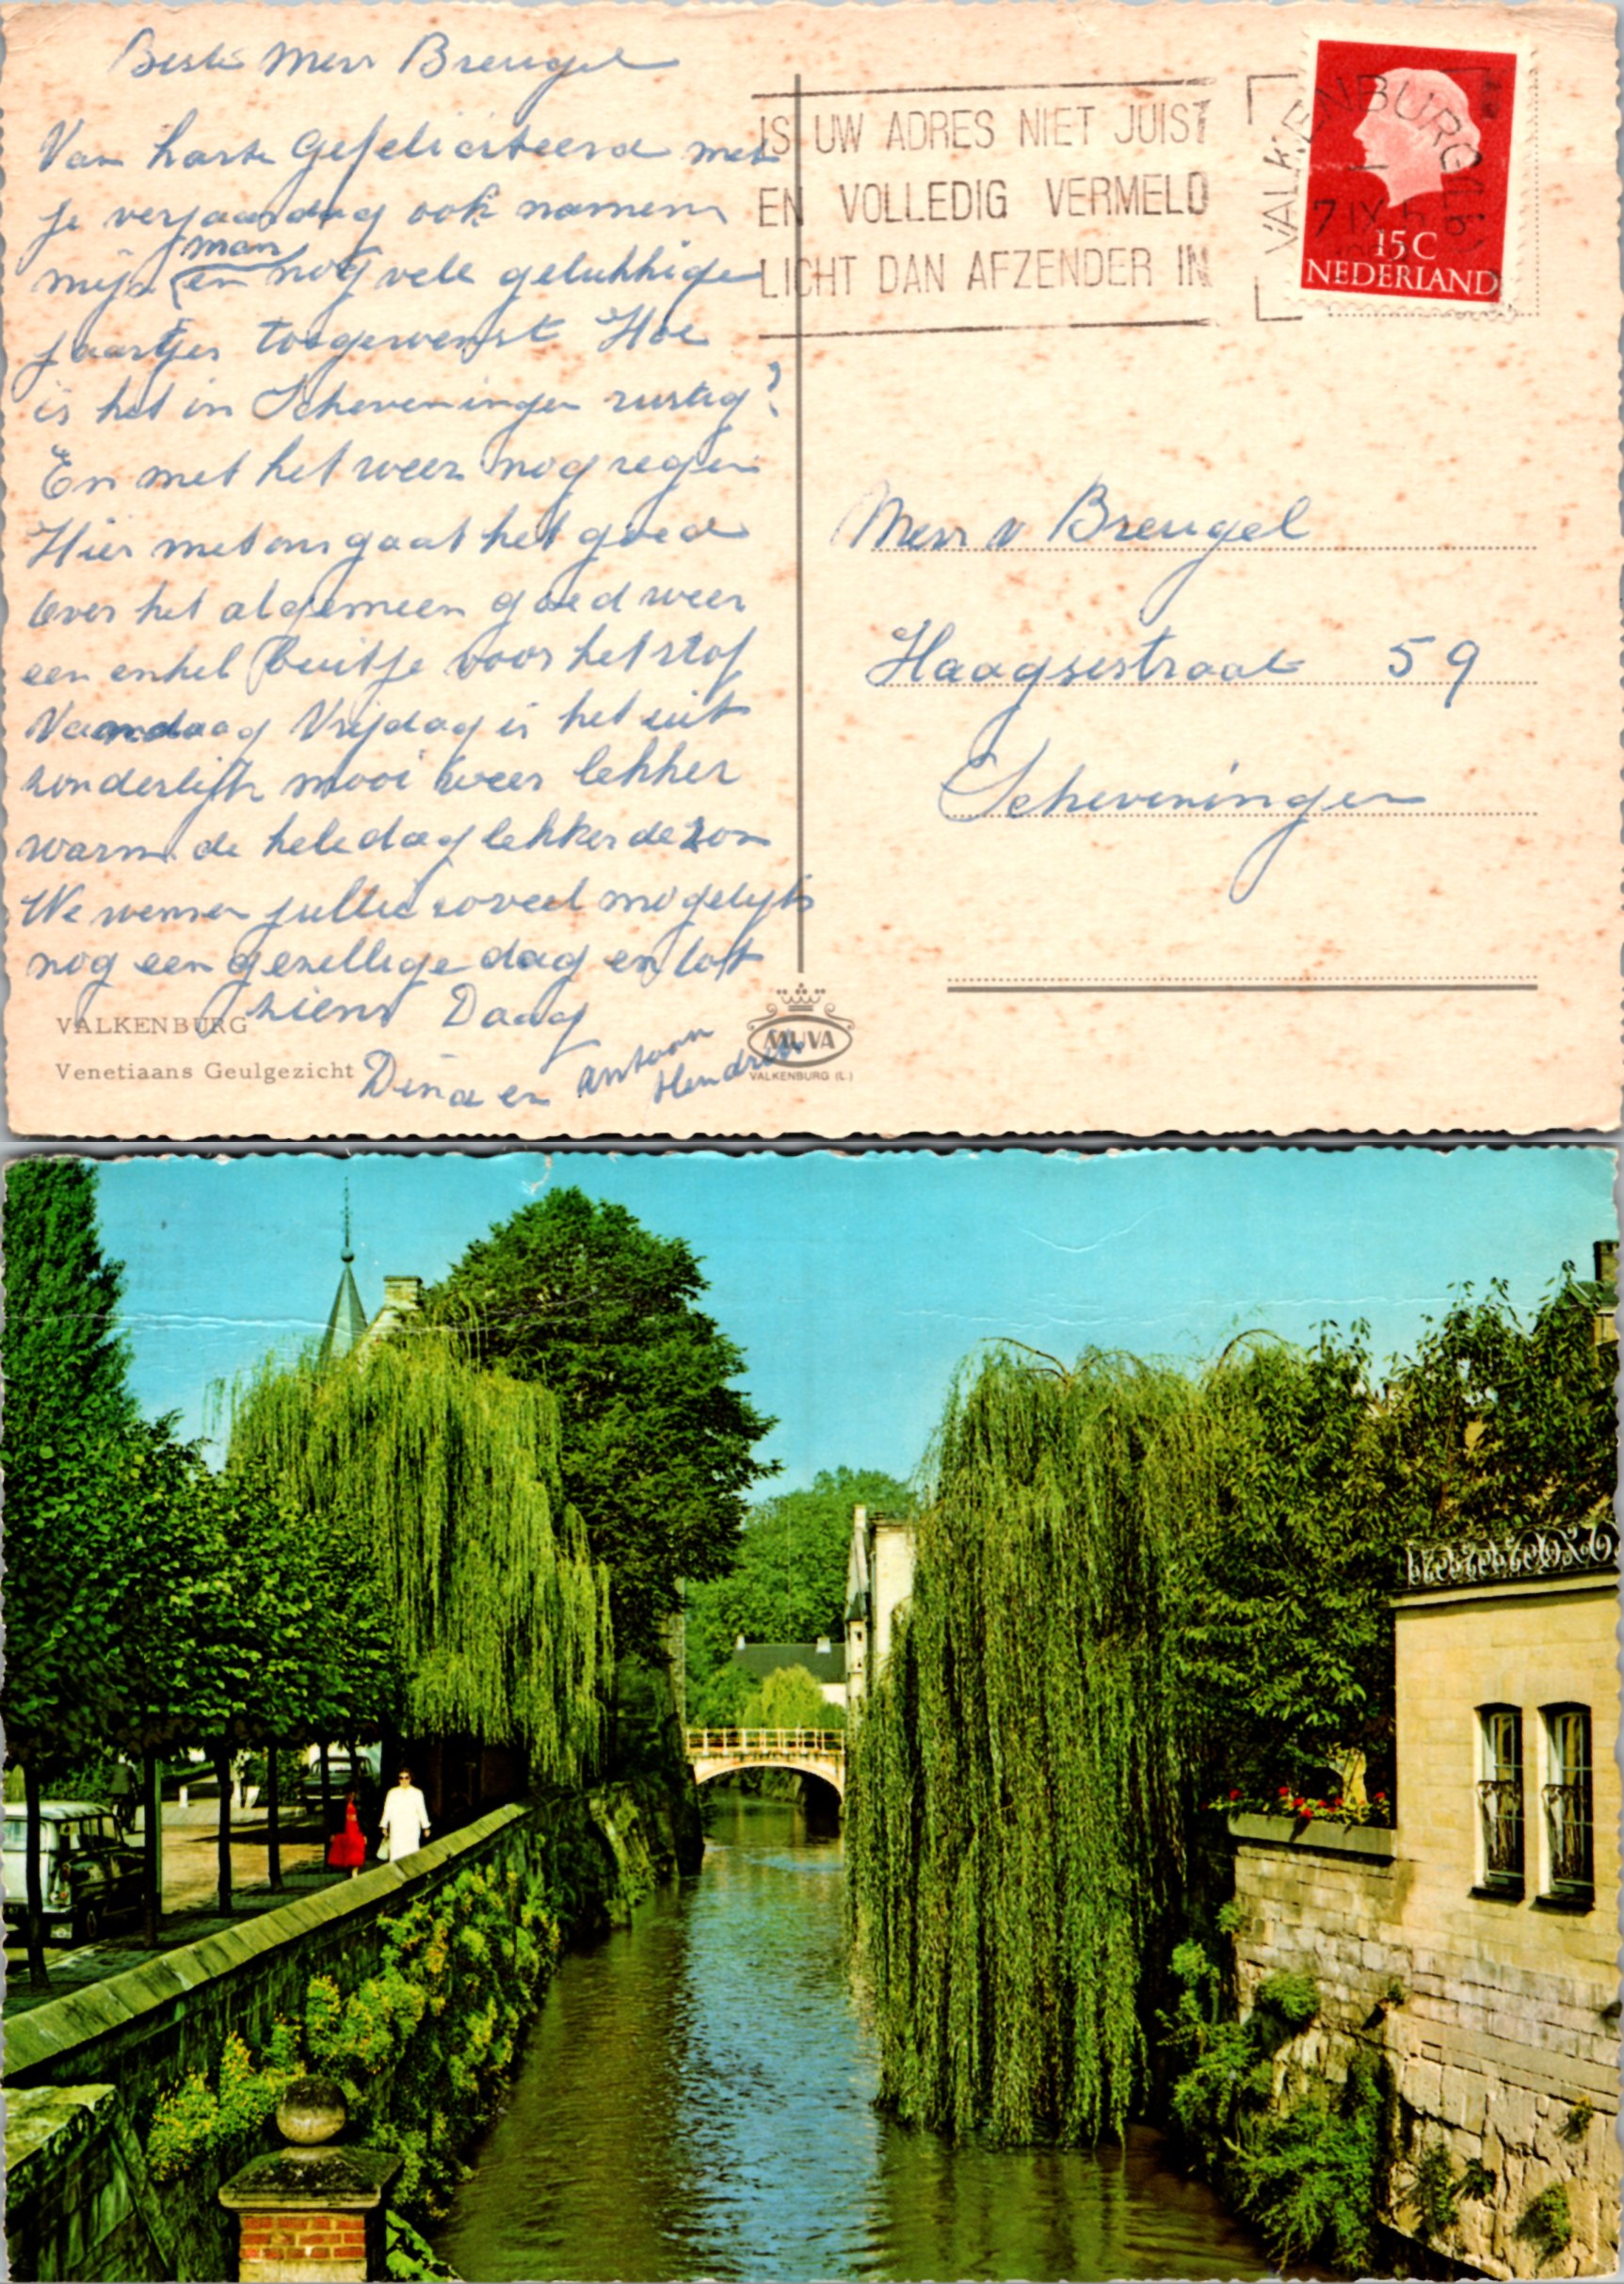 Beste Mevr Breugel
Van harte gefeliciteerd met
je verjaardag ook namens
mijn man en nog vele gelukkige
jaartjes toegewenst Hoe
is het in Scheveningen rustig?
En met het weer nog regen
Hier met ons gaat het goed
over het algemeen goed weer
een enkel buitje voor het stof
Vandaag Vrijdag is het uit
zonderlijk mooi weer lekker
warm de hele dag lekker de zon
We wensen jullie zoveel mogelijk
nog een gezellige dag en tot
ziens Daag
Dina en Antoon
Hendriks
VALKENBURG
Venetiaans Geulgezicht
MUVA
VALKENBURG (L)
IS UW ADRES NIET JUIST
EN VOLLEDIG VERMELD
LICHT DAN AFZENDER IN
VALKENBURG (LB)
7 IX
15C
NEDERLAND
Mevr v Breugel
Haagsestraat 59
Scheveningen